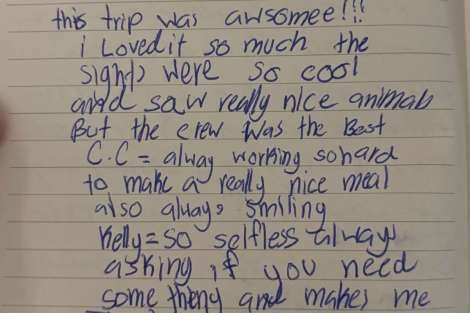 this trip was awsomee!!!
i Loved it so much the
sights were so cool
and saw really nice animals
But the crew was the Best
C.C = alway working so hard
to make a really nice meal
also always smiling
Kelly = so selfless always
asking if you need
some theny and makes me